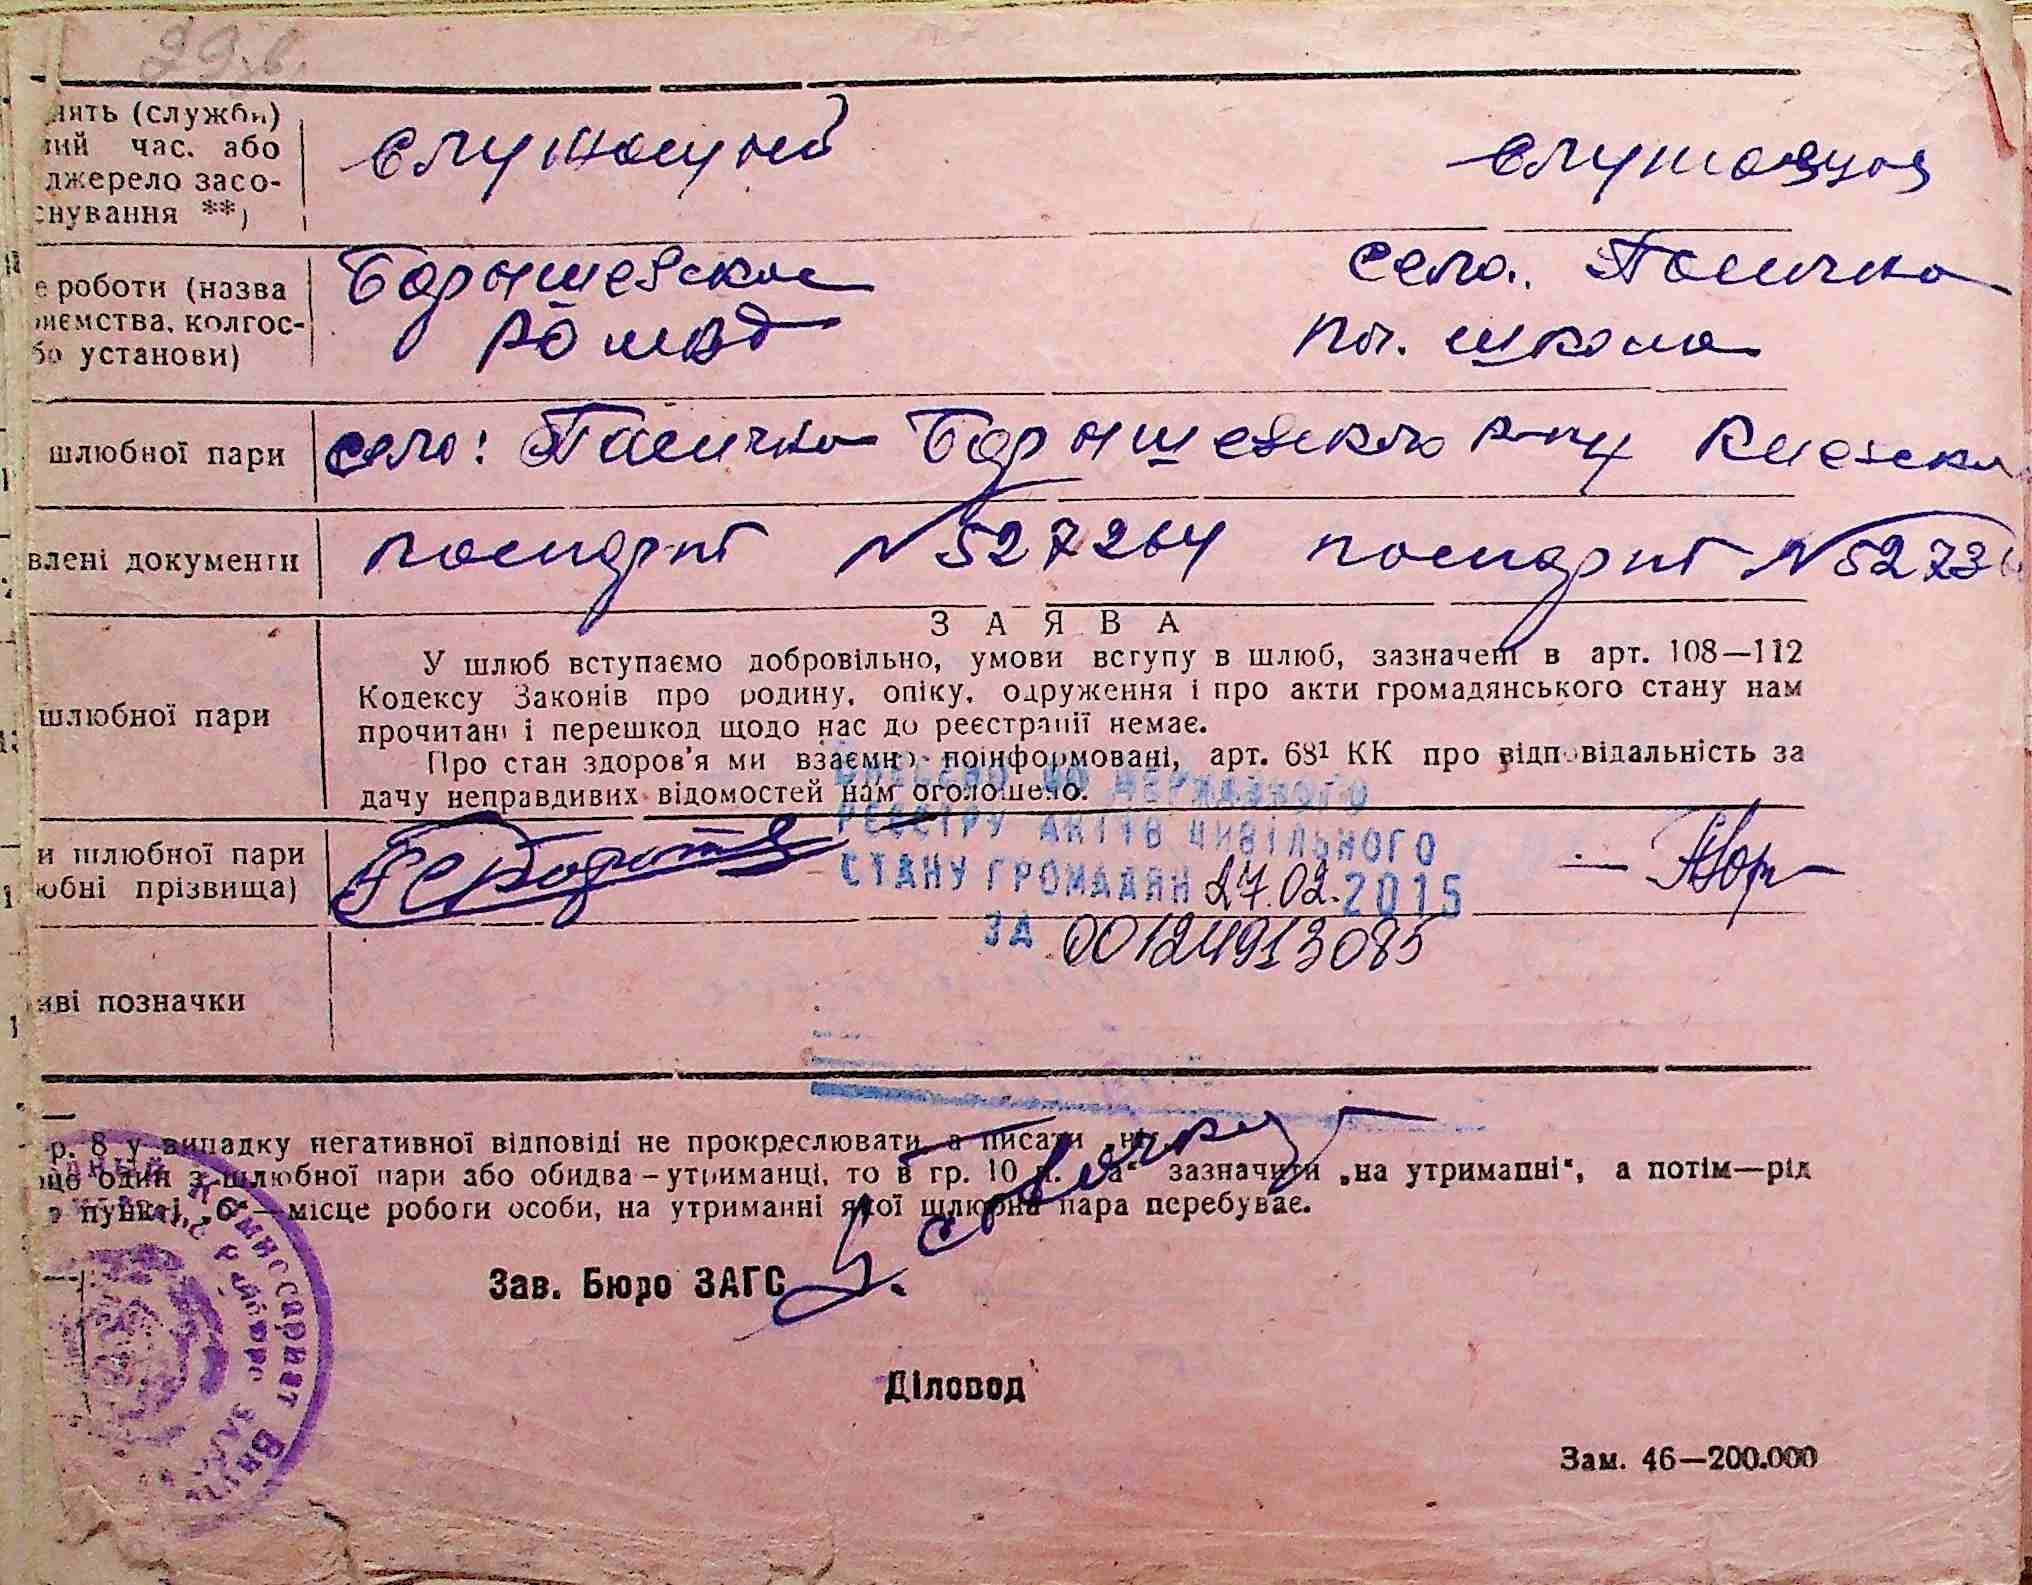 служащий служащая
нять (служби)
ний час. або
джерело засо-
снування **)
Барышевское село. Пасичка
е роботи (назва
риємства, колгос-
бо установи)
РО НКВД нп. школа
шлюбної пари
село: Пасичка Барышевского р-ну Киевско
влені документи
паспорт № 527264 паспорт № 52736
ЗАЯВА
У шлюб вступаємо добровільно, умови вступу в шлюб, зазначені в арт. 108—112
Кодексу Законів про родину, опіку, одруження і про акти громадянського стану нам
прочитані і перешкод щодо нас до реєстрації немає.
Про стан здоров'я ми взаємно поінформовані, арт. 68¹ КК про відповідальність за
дачу неправдивих відомостей нам оголошено.
шлюбної пари
ВНЕСЕНО ДО ДЕРЖАВНОГО
РЕЄСТРУ АКТІВ ЦИВІЛЬНОГО
СТАНУ ГРОМАДЯН 27.02.2015
ЗА 00124913085
и шлюбної пари
юбні прізвища)
иві позначки
р. 8 у випадку негативної відповіді не прокреслювати, а писати „ні“.
що один з шлюбної пари або обидва – утриманці, то в гр. 10 п. „а“ зазначити „на утриманні“, а потім—рід
в пункті „б“—місце роботи особи, на утриманні якої шлюбна пара перебуває.
Зав. Бюро ЗАГС
Діловод
Зам. 46—200.000
комиссариат Внут
райбюро ЗАГС